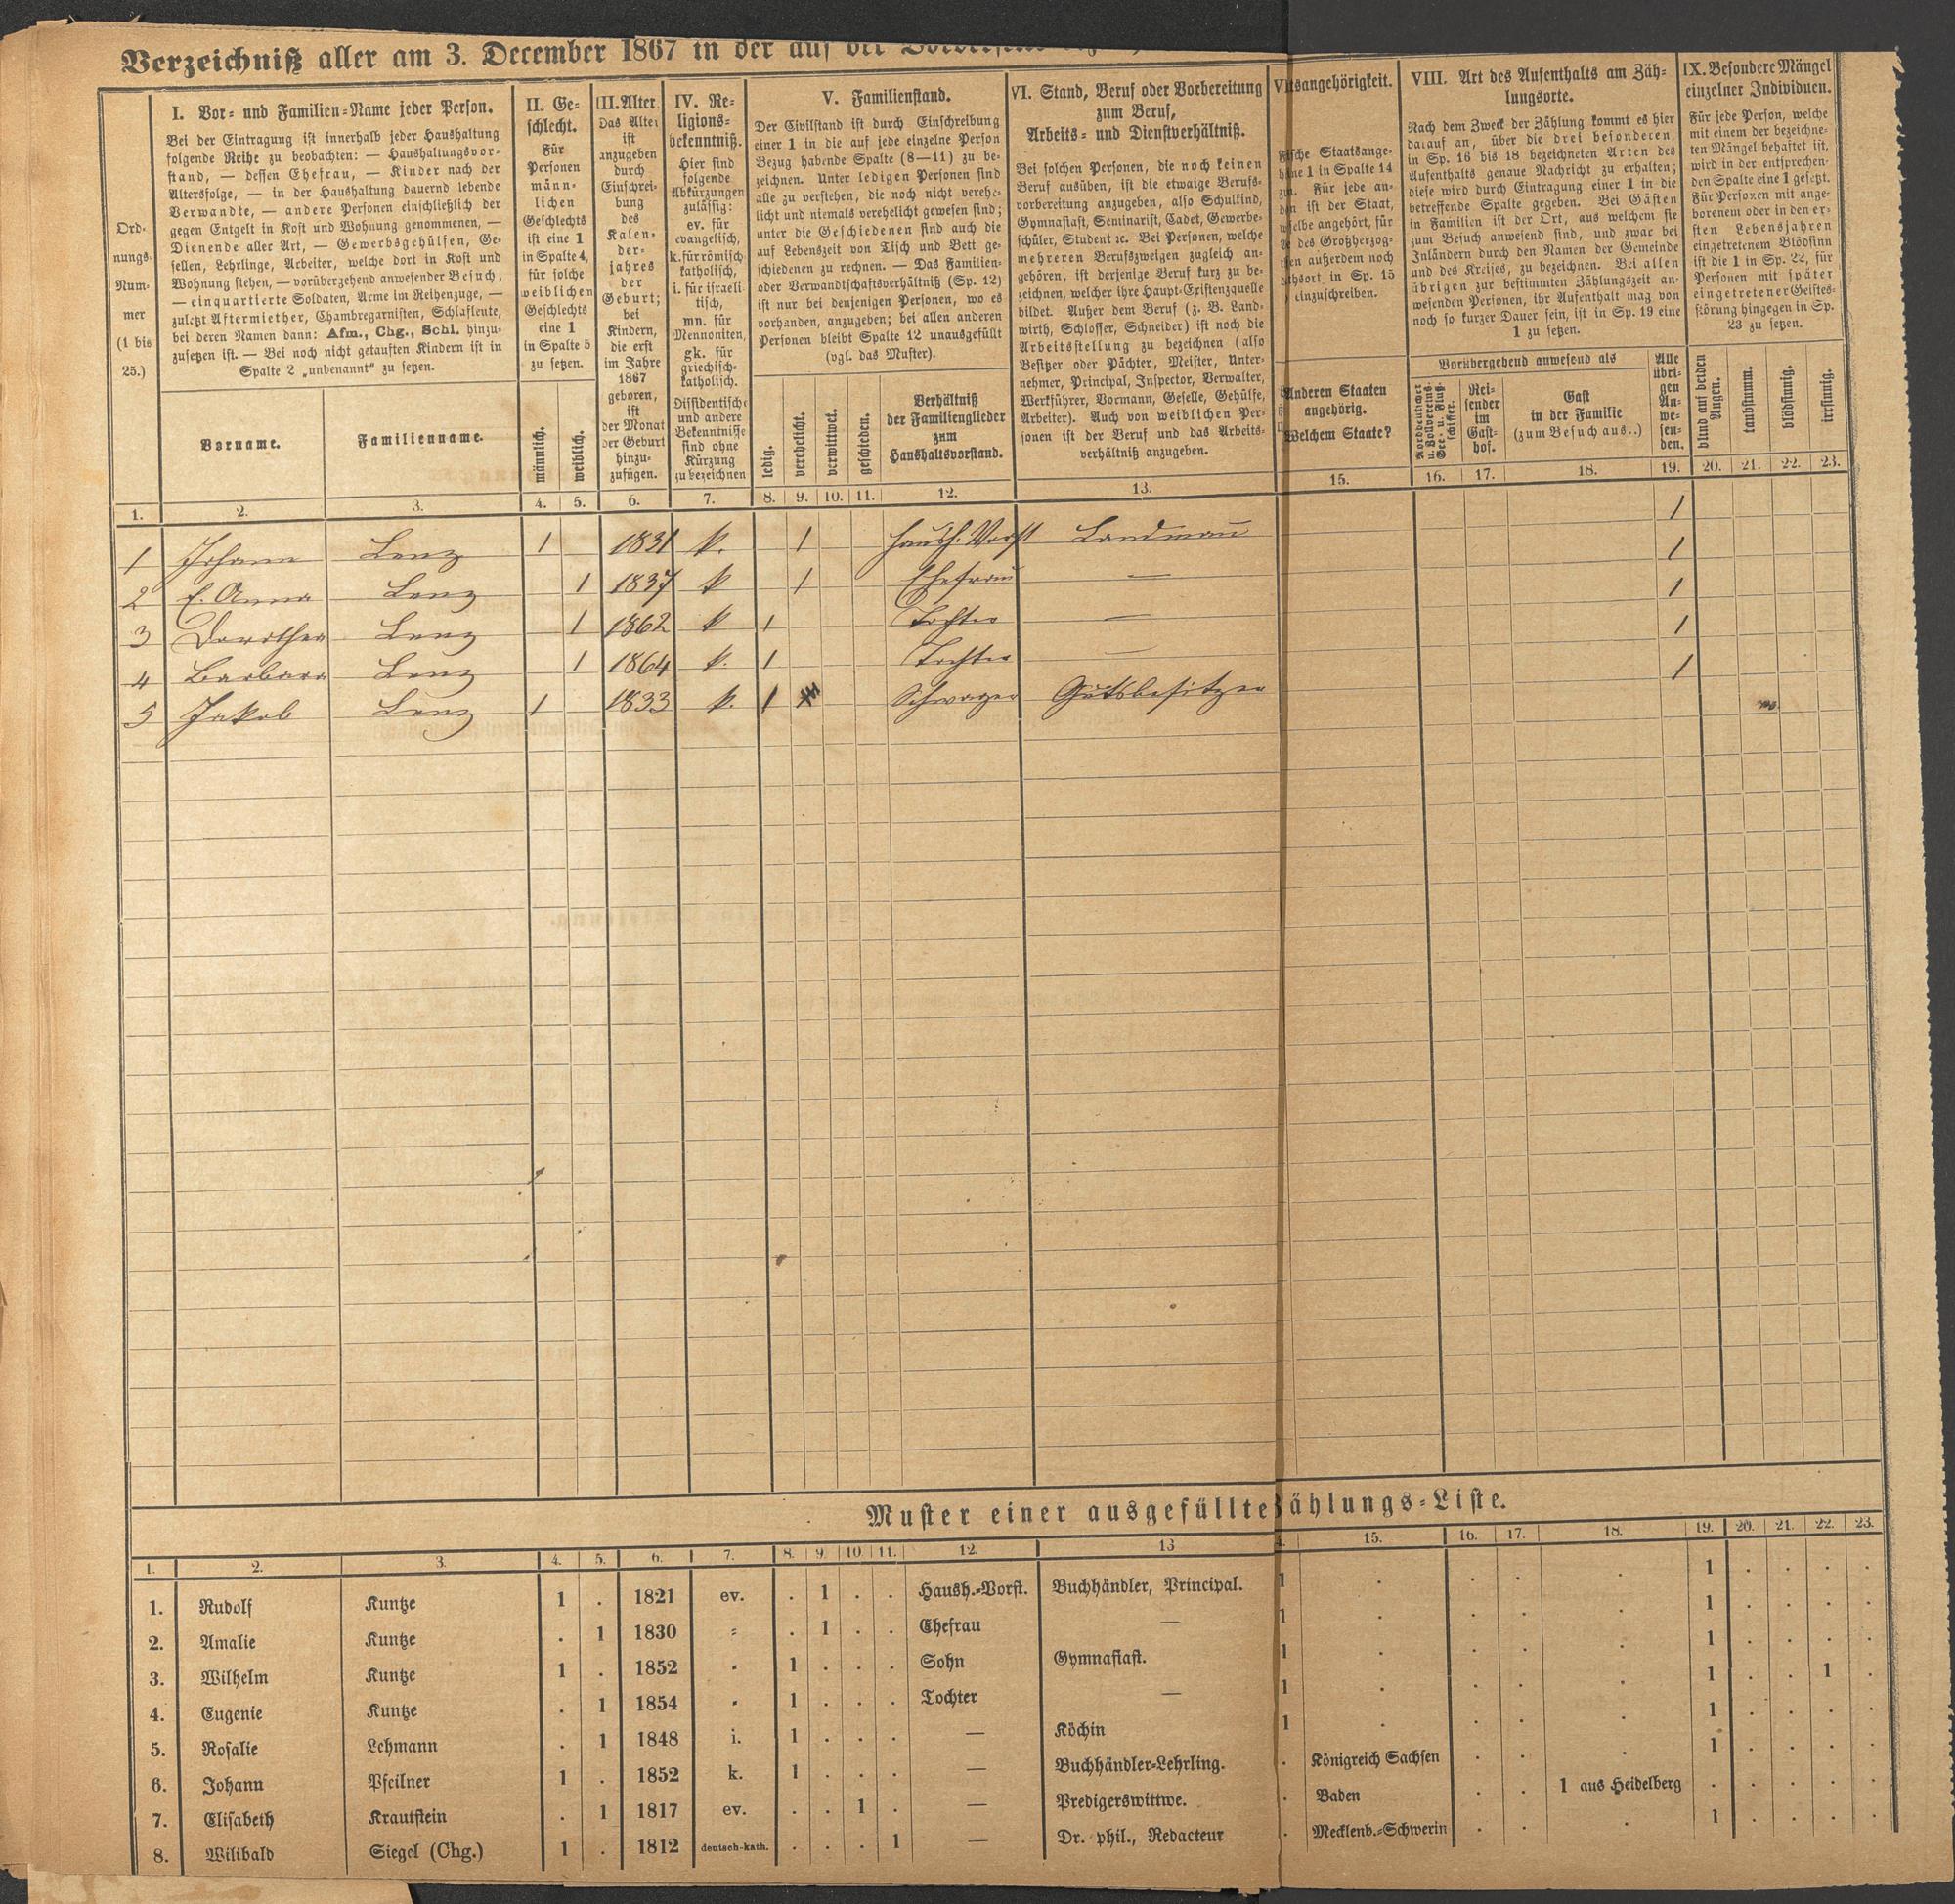 Verzeichniß aller am 3. December 1867 in der auf der
Ord-
nungs-
Num-
mer
(1 bis
25.)
I. Vor- und Familien-Name jeder Person.
Bei der Eintragung ist innerhalb jeder Haushaltung
folgende Reihe zu beobachten: — Haushaltungsvor-
stand, — dessen Ehefrau, — Kinder nach der
Altersfolge, — in der Haushaltung dauernd lebende
Verwandte, — andere Personen einschließlich der
gegen Entgelt in Kost und Wohnung genommenen, —
Dienende aller Art, — Gewerbsgehülfen, Ge-
sellen, Lehrlinge, Arbeiter, welche dort in Kost und
Wohnung stehen, — vorübergehend anwesender Besuch,
— einquartierte Soldaten, Arme im Reihenzuge, —
zuletzt Aftermiether, Chambregarnisten, Schlafleute,
bei deren Namen dann: Afm., Chg., Schl. hinzu-
zusetzen ist. — Bei noch nicht getauften Kindern ist in
Spalte 2 „unbenannt“ zu setzen.
Vorname.
Familienname.
II. Ge-
schlecht.
Für
Personen
männ-
lichen
Geschlechts
ist eine 1
in Spalte 4,
für solche
weiblichen
Geschlechts
eine 1
in Spalte 5
zu setzen.
männlich.
weiblich.
III. Alter.
Das Alter
ist
anzugeben
durch
Einschrei-
bung
des
Kalen-
der-
jahres
der
Geburt;
bei
Kindern,
die erst
im Jahre
1867
geboren,
ist
der Monat
der Geburt
hinzu-
zufügen.
IV. Re-
ligions-
bekenntniß.
Hier sind
folgende
Abkürzungen
zulässig:
ev. für
evangelisch,
k. für römisch-
katholisch,
i. für israeli-
tisch,
mn. für
Mennoniten,
gk. für
griechisch-
katholisch.
Dissidentische
und andere
Bekenntnisse
sind ohne
Kürzung
zu bezeichnen
V. Familienstand.
Der Civilstand ist durch Einschreibung
einer 1 in die auf jede einzelne Person
Bezug habende Spalte (8—11) zu be-
zeichnen. Unter ledigen Personen sind
alle zu verstehen, die noch nicht verehe-
licht und niemals verehelicht gewesen sind;
unter die Geschiedenen sind auch die
auf Lebenszeit von Tisch und Bett ge-
schiedenen zu rechnen. — Das Familien-
oder Verwandtschaftsverhältniß (Sp. 12)
ist nur bei denjenigen Personen, wo es
vorhanden, anzugeben; bei allen anderen
Personen bleibt Spalte 12 unausgefüllt
(vgl. das Muster).
ledig.
verehelicht.
verwittwet.
geschieden.
Verhältniß
der Familienglieder
zum
Haushaltsvorstand.
VI. Stand, Beruf oder Vorbereitung
zum Beruf,
Arbeits- und Dienstverhältniß.
Bei solchen Personen, die noch keinen
Beruf ausüben, ist die etwaige Berufs-
vorbereitung anzugeben, also Schulkind,
Gymnasiast, Seminarist, Cadet, Gewerbe-
schüler, Student ꝛc. Bei Personen, welche
mehreren Berufszweigen zugleich an-
gehören, ist derjenige Beruf kurz zu be-
zeichnen, welcher ihre Haupt-Existenzquelle
bildet. Außer dem Beruf (z. B. Land-
wirth, Schlosser, Schneider) ist noch die
Arbeitsstellung zu bezeichnen (also
Besitzer oder Pächter, Meister, Unter-
nehmer, Principal, Inspector, Verwalter,
Werkführer, Vormann, Geselle, Gehülfe,
Arbeiter). Auch von weiblichen Per-
sonen ist der Beruf und das Arbeits-
verhältniß anzugeben.
tsangehörigkeit.
sche Staatsange-
ine 1 in Spalte 14
Für jede an-
ist der Staat,
selbe angehört, für
des Großherzog-
en außerdem noch
thsort in Sp. 15
einzuschreiben.
Anderen Staaten
angehörig.
Welchem Staate?
VIII. Art des Aufenthalts am Zäh-
lungsorte.
Nach dem Zweck der Zählung kommt es hier
darauf an, über die drei besonderen,
in Sp. 16 bis 18 bezeichneten Arten des
Aufenthalts genaue Nachricht zu erhalten;
diese wird durch Eintragung einer 1 in die
betreffende Spalte gegeben. Bei Gästen
in Familien ist der Ort, aus welchem sie
zum Besuch anwesend sind, und zwar bei
Inländern durch den Namen der Gemeinde
und des Kreises, zu bezeichnen. Bei allen
übrigen zur bestimmten Zählungszeit an-
wesenden Personen, ihr Aufenthalt mag von
noch so kurzer Dauer sein, ist in Sp. 19 eine
1 zu setzen.
Vorübergehend anwesend als
Norddeutscher
u. Zollvereins-
See- u. Fluß-
schiffer.
Rei-
sender
im
Gast-
hof.
Gast
in der Familie
(zum Besuch aus..)
Alle
übri-
gen
An-
we-
sen-
den.
IX. Besondere Mängel
einzelner Individuen.
Für jede Person, welche
mit einem der bezeichne-
ten Mängel behaftet ist,
wird in der entsprechen-
den Spalte eine 1 gesetzt.
Für Personen mit ange-
borenem oder in den er-
sten Lebensjahren
eingetretenem Blödsinn
ist die 1 in Sp. 22, für
Personen mit später
eingetretener Geistes-
störung hingegen in Sp.
23 zu setzen.
blind auf beiden
Augen.
taubstumm.
blödsinnig.
irrsinnig.
1. 2. 3. 4. 5. 6. 7. 8. 9. 10. 11. 12. 13. 15. 16. 17. 18. 19. 20. 21. 22. 23.
1 Johann Lenz 1 1831 k. 1 Haush. Vorst Landmañ 1
2 E. Anna Lenz 1 1837 k 1 Ehefrau — 1
3 Dorothea Lenz 1 1862 k 1 Tochter — 1
4 Barbara Lenz 1 1864 k. 1 Tochter — 1
5 Jakob Lenz 1 1833 k. 1 Schwager Gutsbesitzer 1
Muster einer ausgefüllte Zählungs-Liste.
1. 2. 3. 4. 5. 6. 7. 8. 9. 10. 11. 12. 13 15. 16. 17. 18. 19. 20. 21. 22. 23.
1. Rudolf Kuntze 1 . 1821 ev. . 1 . . Haush.-Vorst. Buchhändler, Principal. 1 . . . . 1 . . . .
2. Amalie Kuntze . 1 1830 " . 1 . . Ehefrau — 1 . . . . 1 . . . .
3. Wilhelm Kuntze 1 . 1852 " 1 . . . Sohn Gymnasiast. 1 . . . . 1 . . . .
4. Eugenie Kuntze . 1 1854 " 1 . . . Tochter — 1 . . . . 1 . . 1 .
5. Rosalie Lehmann . 1 1848 i. 1 . . . — Köchin 1 . . . . 1 . . . .
6. Johann Pfeilner 1 . 1852 k. 1 . . . — Buchhändler-Lehrling. . Königreich Sachsen . . . 1 . . . .
7. Elisabeth Krautstein . 1 1817 ev. . . 1 . — Predigerswittwe. . Baden . . 1 aus Heidelberg . . . . .
8. Wilibald Siegel (Chg.) 1 . 1812 deutsch-kath. . . . 1 — Dr. phil., Redacteur . Mecklenb.-Schwerin . . . 1 . . . .